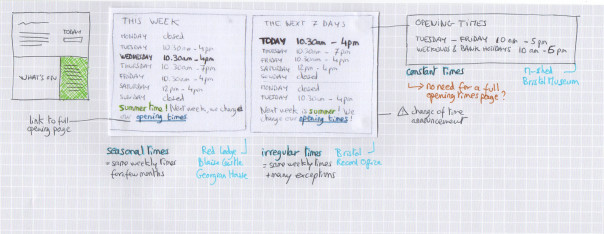 TODAY
WHAT'S ON
link to full
opening page
THIS WEEK
MONDAY closed
TUESDAY 10.30am - 4pm
WEDNESDAY 10.30am - 4pm
THURSDAY 10.30am - 7pm
FRIDAY 10.30am - 4pm
SATURDAY 12pm - 4pm
SUNDAY closed
Summer time! Next week, we change
our opening times
seasonal times
= same weekly times
for few months
Red Lodge
Blaise Castle
Georgian House
THE NEXT 7 DAYS
TODAY 10.30am - 4pm
THURSDAY 10.30am - 7pm
FRIDAY 10.30am - 4pm
SATURDAY 12pm - 4pm
SUNDAY closed
MONDAY closed
TUESDAY 10.30am - 4pm
Next week is summer! We
change our opening times!
irregular times
= same weekly times
+ many exceptions
Bristol
Record Office
OPENING TIMES
TUESDAY - FRIDAY 10am - 5pm
WEEKENDS & BANK HOLIDAYS 10am - 6pm
constant times
no need for a full
opening times page?
M-shed
Bristol Museum
change of time
announcement